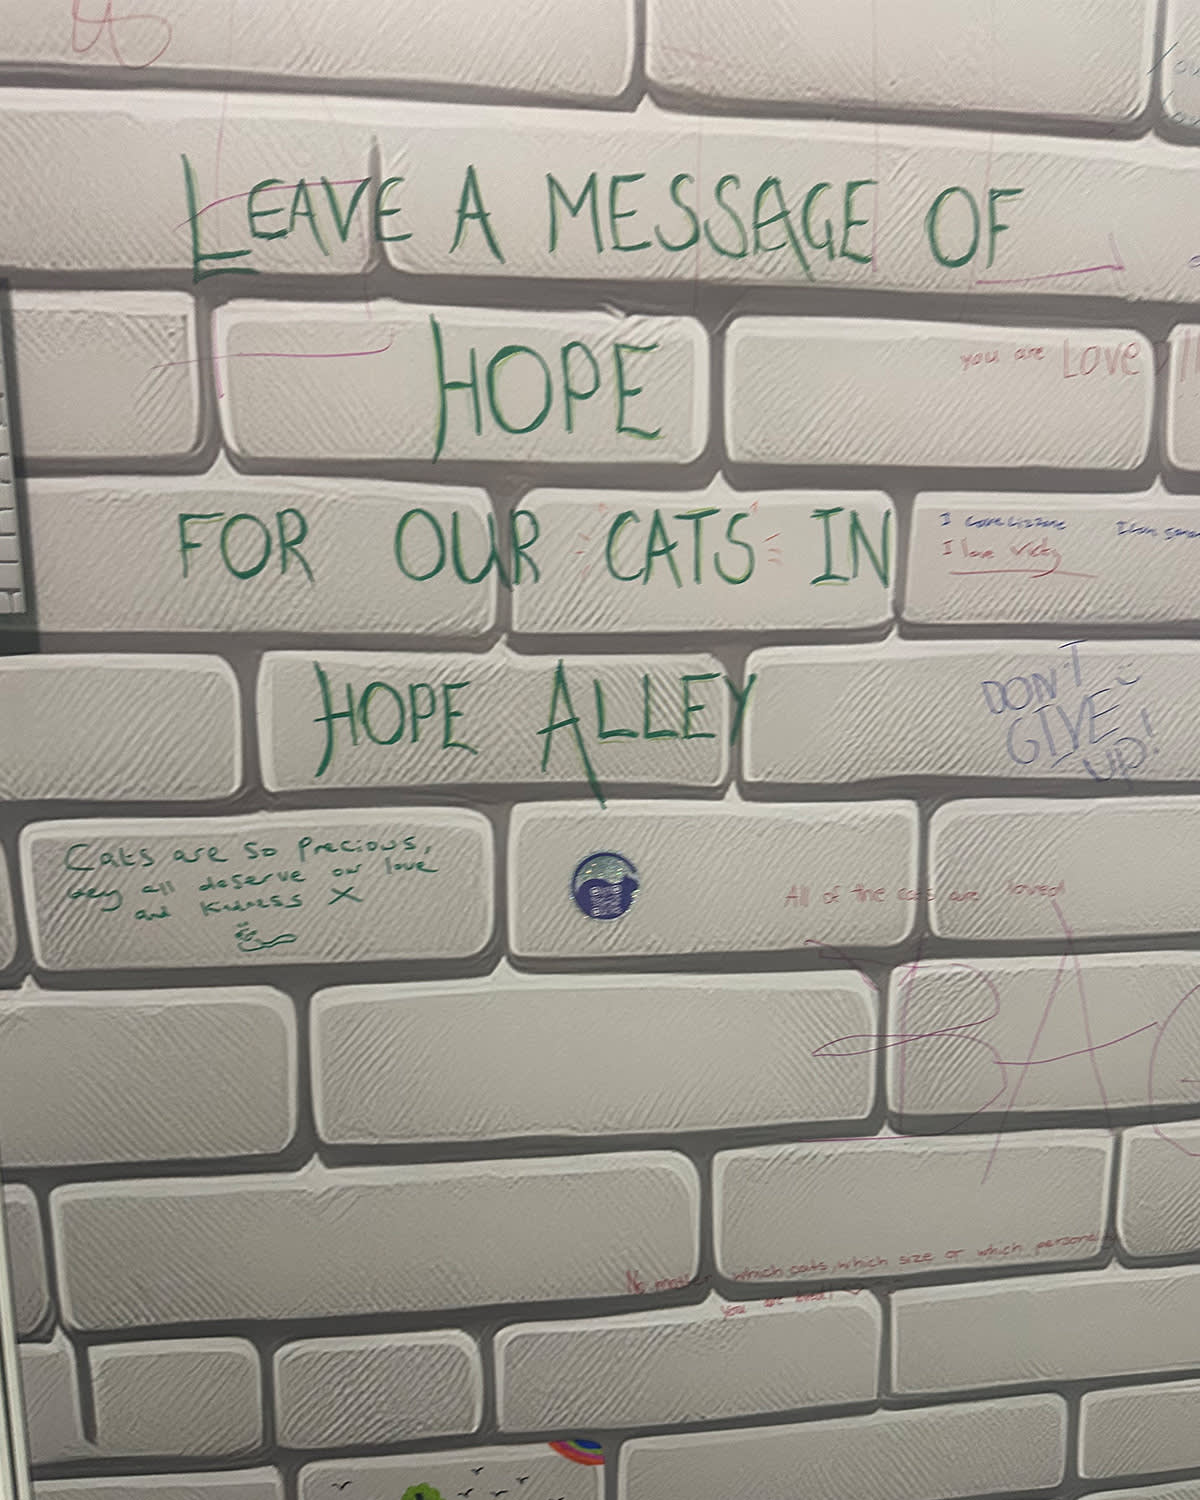 LEAVE A MESSAGE OF
HOPE
you are LOVE
FOR OUR CATS IN
I love Vicky
HOPE ALLEY
DON'T
GIVE
UP!
Cats are so precious,
dey all deserve our love
and kidness X
All of the cats are loved
BAC
No matter which cats, which size or which personality
you are loved!